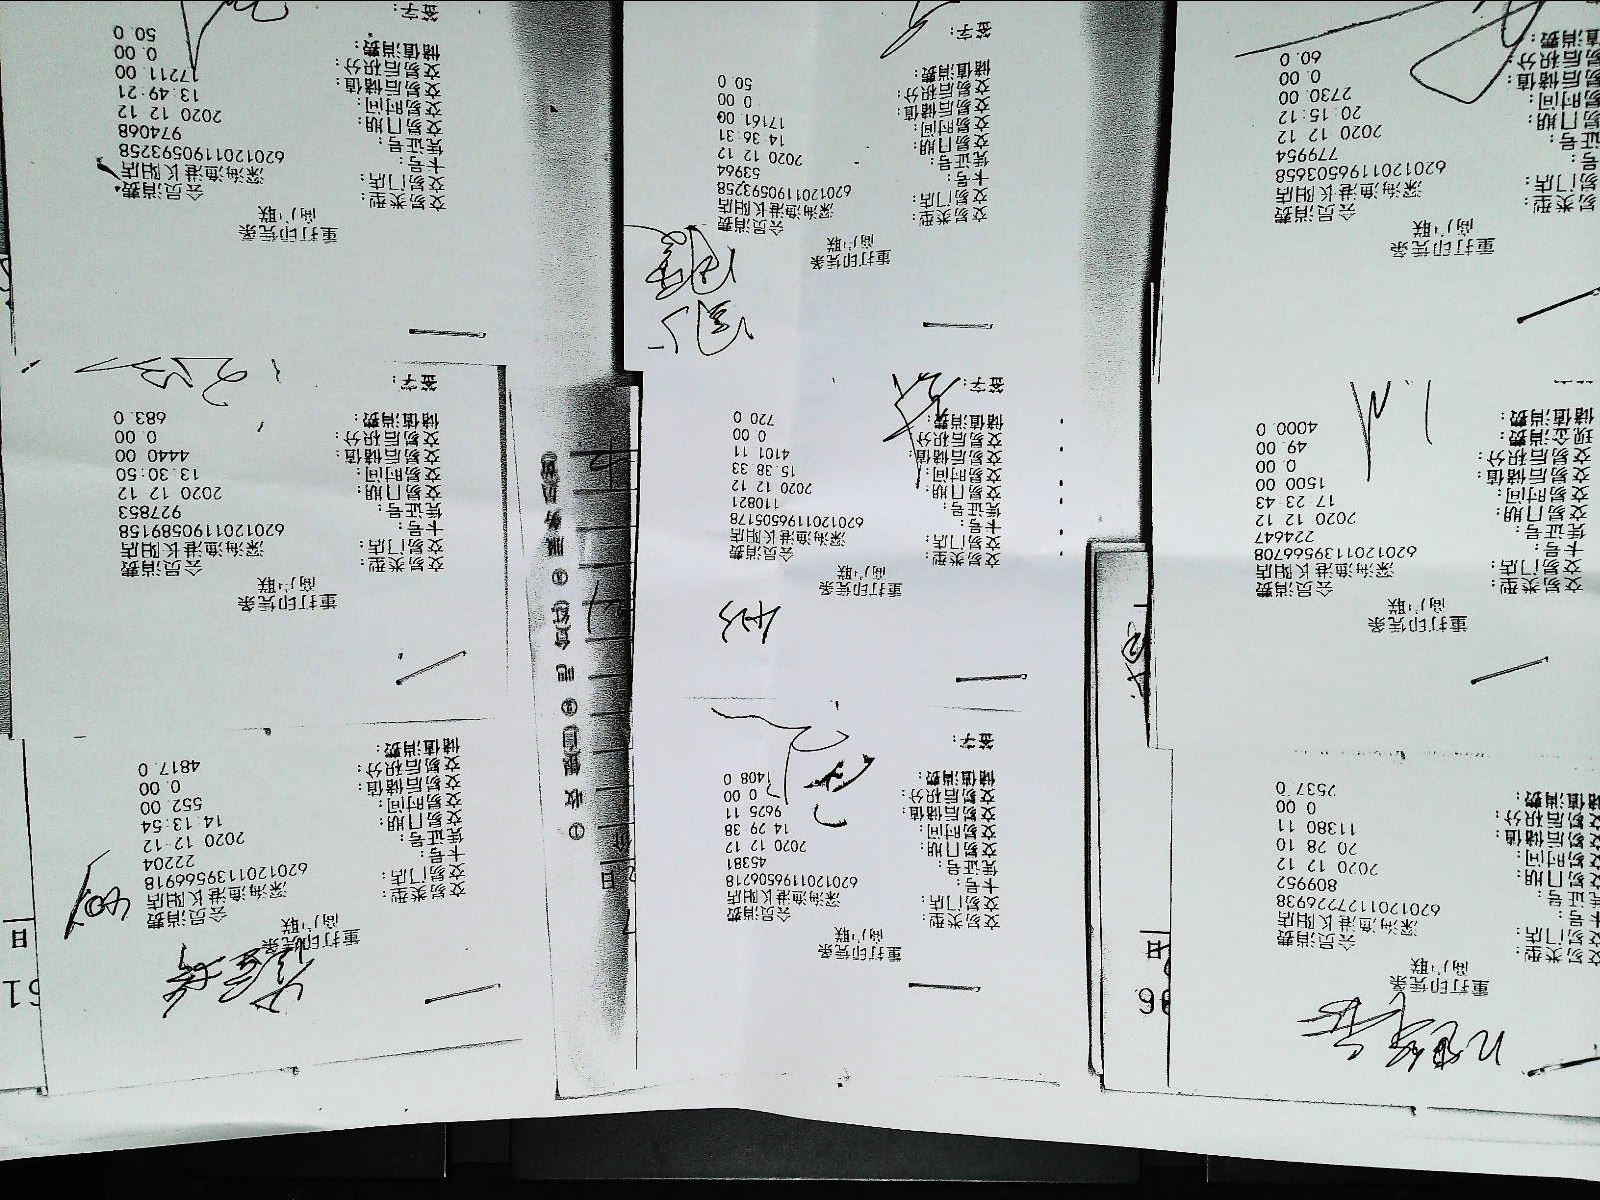 重打印凭条
商户联
交易类型: 会员消费
交易门店: 深海渔港长阳店
卡号: 6201201127226938
凭证号: 809952
交易日期: 2020 12 12
交易时间: 20 28 10
交易后储值: 11380 11
交易后积分: 0 00
储值消费: 2537 0
重打印凭条
商户联
交易类型: 会员消费
交易门店: 深海渔港长阳店
卡号: 6201201196506218
凭证号: 45381
交易日期: 2020 12 12
交易时间: 14 29 38
交易后储值: 9625 11
交易后积分: 0 00
储值消费: 1408 0
签字:
重打印凭条
商户联
交易类型: 会员消费
交易门店: 深海渔港长阳店
卡号: 6201201139566918
凭证号: 22204
交易日期: 2020 12-12
交易时间: 14:13:54
交易后储值: 552 00
交易后积分: 0.00
储值消费: 4817.0
重打印凭条
商户联
交易类型: 会员消费
交易门店: 深海渔港长阳店
卡号: 6201201139566708
凭证号: 724647
交易日期: 2020 12 12
交易时间: 17 23 43
交易后储值: 1500 00
交易后积分: 0.00
现金消费: 49.00
储值消费: 4000 0
重打印凭条
商户联
交易类型: 会员消费
交易门店: 深海渔港长阳店
卡号: 6201201196505178
凭证号: 110821
交易日期: 2020 12 12
交易时间: 15 38 33
交易后储值: 4101 11
交易后积分: 0 00
储值消费: 720 0
签字:
重打印凭条
商户联
交易类型: 会员消费
交易门店: 深海渔港长阳店
卡号: 6201201190589158
凭证号: 927853
交易日期: 2020 12 12
交易时间: 13:30:50
交易后储值: 4440 00
交易后积分: 0 00
储值消费: 683.0
签字:
重打印凭条
商户联
交易类型: 会员消费
交易门店: 深海渔港长阳店
卡号: 6201201196503658
凭证号: 779954
交易日期: 2020 12 12
交易时间: 20:15:12
交易后储值: 2730 00
交易后积分: 0.00
储值消费: 60.0
重打印凭条
商户联
交易类型: 会员消费
交易门店: 深海渔港长阳店
卡号: 6201201190593258
凭证号: 53964
交易日期: 2020 12 12
交易时间: 14 36 31
交易后储值: 17161 00
交易后积分: 0 00
储值消费: 50 0
签字:
重打印凭条
商户联
交易类型: 会员消费
交易门店: 深海渔港长阳店
卡号: 6201201190593258
凭证号: 974068
交易日期: 2020 12 12
交易时间: 13:49:21
交易后储值: 17211.00
交易后积分: 0.00
储值消费: 50.0
签字: